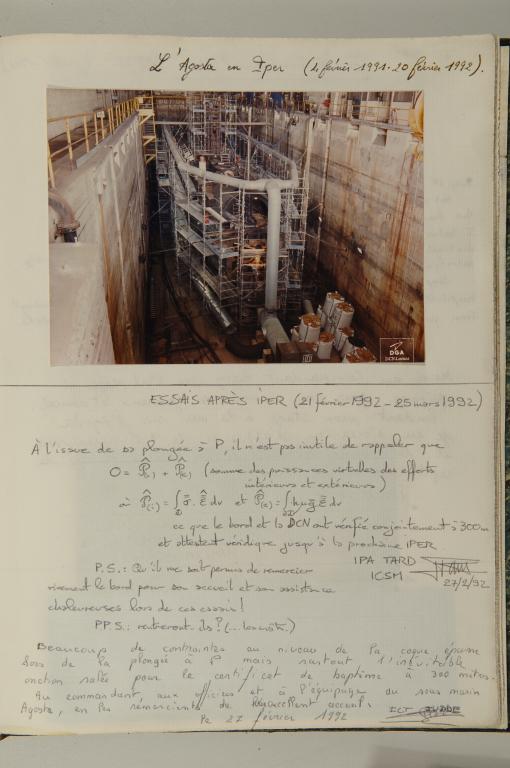 L'Agosta en Iper (4 février 1991 - 20 février 1992).
DGA
DCN Lorient
ESSAIS APRÈS IPER (21 février 1992 - 25 mars 1992)
À l'issue de sa plongée à P, il n'est pas inutile de rappeler que
0 = P̂(i) + P̂(e) (somme des puissances virtuelles des efforts
intérieurs et extérieurs)
où P̂(i) = ∫
et P̂(e) = ∫
ce que le bord et la DCN ont vérifié conjointement à 300m
et attestent véridique jusqu'à la prochaine IPER
IPA TARD
ICSM
27/2/92
P.S.: Qu'il me soit permis de remercier
vivement le bord pour son accueil et son assistance
chaleureuses lors de ces essais!
PPS: rentreront-ils? (...
Beaucoup de contraintes au niveau de la coque épaisse
lors de la plongée à P mais surtout l'inévitable
onction salée pour le certificat de baptême à 300 mètres.
Au commandant, aux officiers et à l'équipage du sous marin
Agosta, en les remerciant de l'excellent accueil.
le 27 février 1992